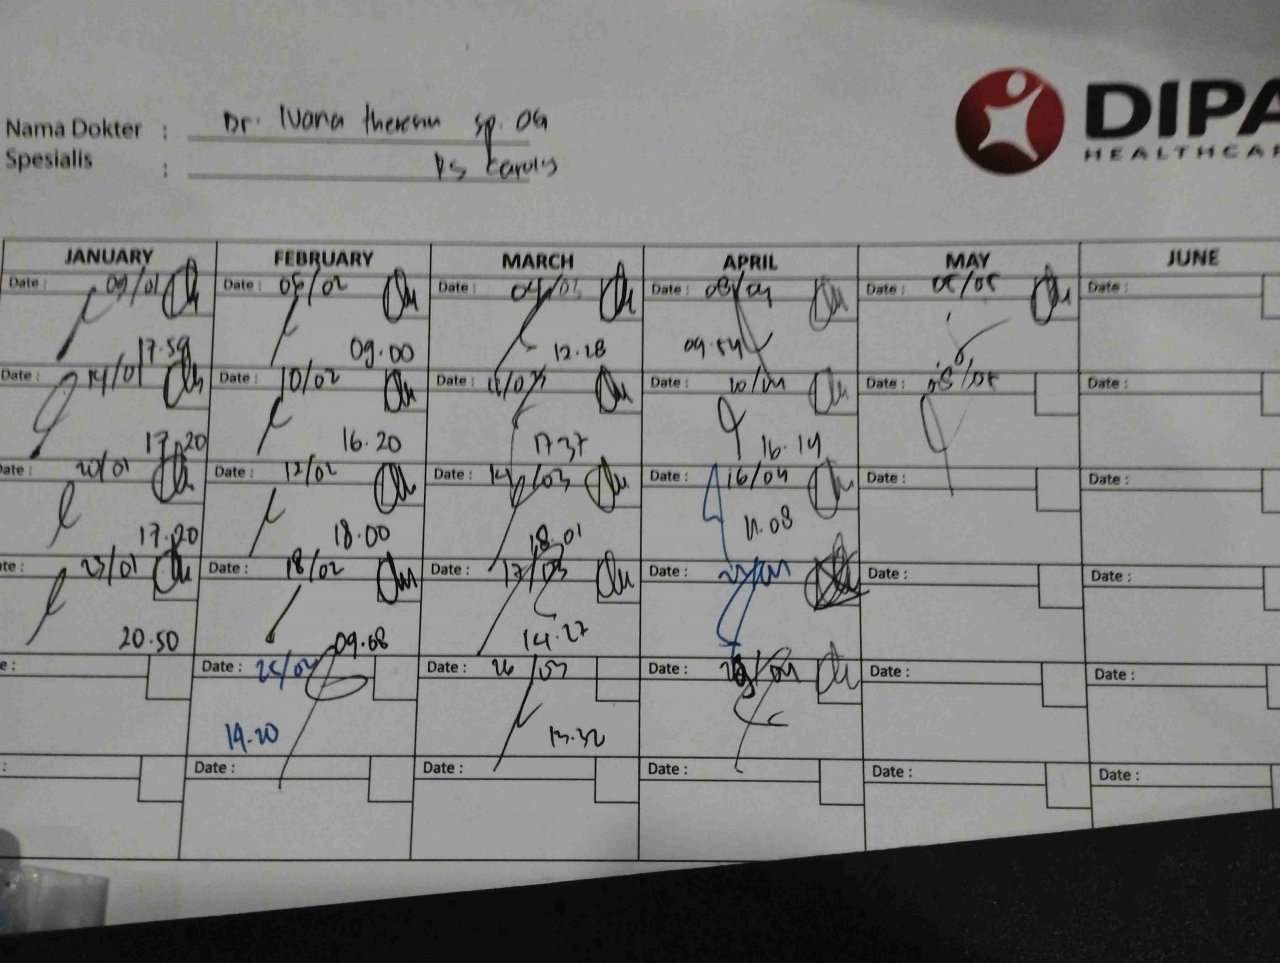 Nama Dokter : Dr. Ivana theresia sp. OG
Spesialis : RS Carolus
DIPA
HEALTHCAR
JANUARY FEBRUARY MARCH APRIL MAY JUNE
Date : 09/01 Date : 05/02 Date : 04/03 Date : 08/04 Date : 05/05 Date :
17.59 09.00 12.28 09.54
Date : 14/01 Date : 10/02 Date : 11/03 Date : 10/04 Date : 08/05 Date :
17.20 16.20 17.37 16.14
Date : 20/01 Date : 12/02 Date : 14/03 Date : 16/04 Date : Date :
17.20 18.00 18.01 11.08
ate : 23/01 Date : 18/02 Date : 17/03 Date : Date : Date :
20.50 09.08 14.27
e : Date : 25/02 Date : 26/03 Date : Date : Date :
19.20 13.32
: Date : Date : Date : Date : Date :